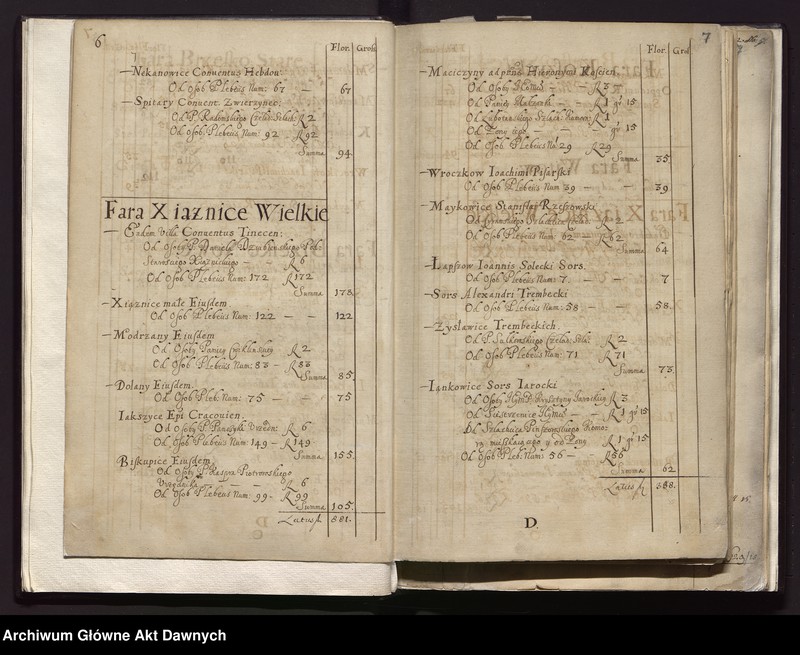 6
Flor. Grosz
— Nekanowice Conuentus Hebdou:
Od Osob Plebeiis Num: 67 — 67
— Spitary Conuent. Zwierzynec:
Od P. Radomskiego Czelad: Szlach: R 2
Od Osob Plebeiis Num: 92 R 92
Summa 94.
Fara Xiaznice Wielkie
— Conuentus Tinecen:
Od Osoby P. Daniela
Starosciego Xiąznickiego — R 6
Od Osob Plebeiis Num: 172 R 172
Summa 178.
— Xiąznice małe Eiusdem
Od Osob Plebeiis Num: 122 — — 122
— Modrzany Eiusdem
Od Osoby Paniey R 2
Od Osob Plebeiis Num: 83 — R 83
Summa 85.
— Dolany Eiusdem.
Od Osob Pleb: Num: 75 — — 75
Iakszyce Epi Cracouien.
Od Osoby P. Vrzędn: R 6
Od Osob Plebeiis Num: 149 — R 149
Summa 155.
Biskupice Eiusdem
Od Osoby P. Kaspra Piotrowskiego
Vrzędnika — — R 6
Od Osob Plebeiis Num: 99. R 99
Summa 105.
Latus f. 881.
7
Flor. Gro
— Maciczyny ad præns Hieronymi Koscien.
Od Osoby — — R 3
Od Paniey — — R 1 gr 15
Od Szlach: R 1
Od Zony iego — — gr 15
Od Osob Plebeiis Nu 29 R 29
Summa 35.
— Wroczkow Ioachimi Pisarski
Od Osob Plebeiis Num 39 — — 39
— Maykowice Stanislai Rzeszowski
R 2
Od Osob Plebeiis Num: 62 — R 62
Summa 64
— Lapszow Ioannis Solecki Sors.
Od Osob Plebeiis Num: 7 — — 7
— Sors Alexandri Trembecki
Od Osob Plebeiis Num: 58 — — 58.
— Zysławice Trembeckich.
Od P. Sulkowskiego Czelad: Szla: R 2
Od Osob Plebeiis Num: 71 R 71
Summa 73.
— Iankowice Sors Iarocki
Od Osoby R 3
Od Siestrzenice — — R 1 gr 15
Od Szlachcica
y od Zony R 1 gr 15
Od Osob Pleb: Num: 56 — R 56
Summa 62
Latus f. 338.
D.
Archiwum Główne Akt Dawnych